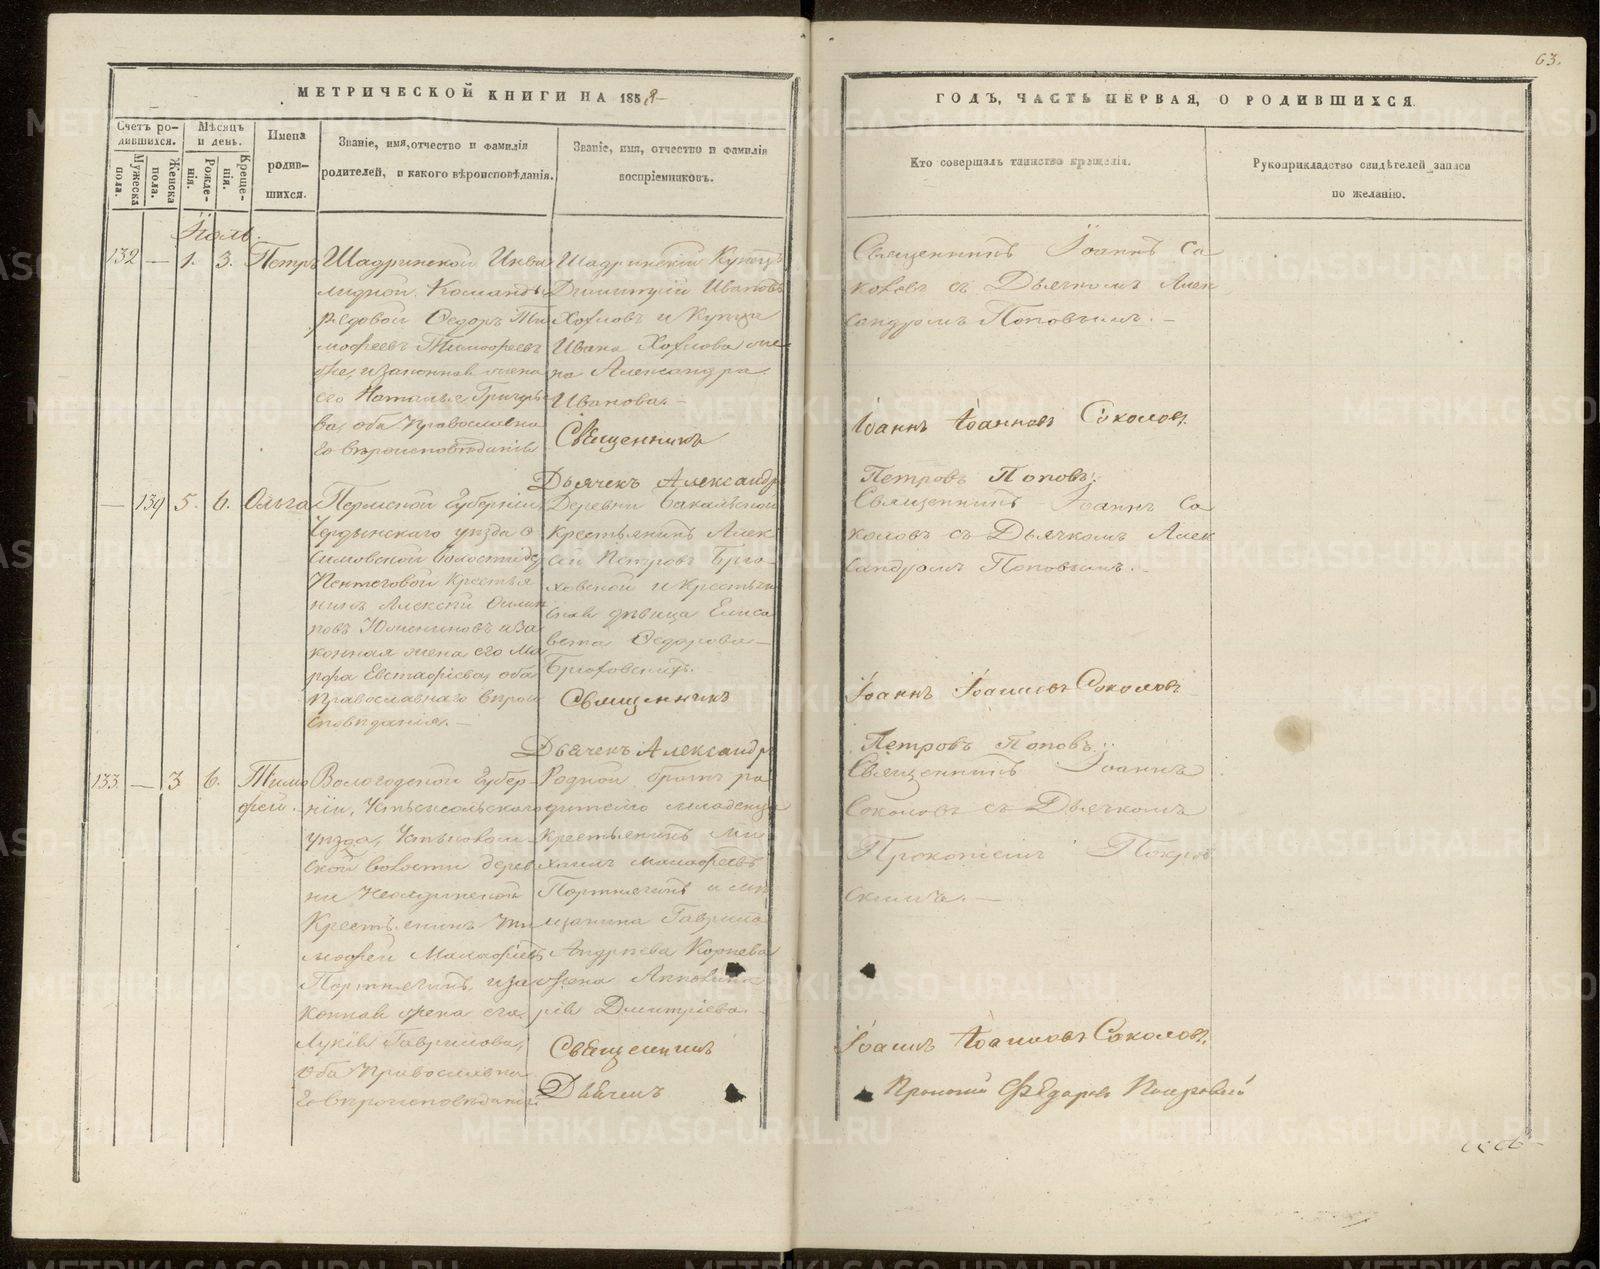 63.
МЕТРИЧЕСКОЙ КНИГИ НА 1859
ГОДЪ, ЧАСТЬ ПЕРВАЯ, О РОДИВШИХСЯ.
Счетъ ро-
дившихся.
Мужеска
пола.
Женска
пола.
Мѣсяцъ
и день.
Рожде-
нія.
Креще-
нія.
Имена
родив-
шихся.
Званіе, имя, отчество и фамилія
родителей, и какого вѣроисповѣданія.
Званіе, имя, отчество и фамилія
воспріемниковъ.
Кто совершалъ таинство крещенія.
Рукоприкладство свидѣтелей записи
по желанію.
Іюль.
132 — 1. 3. Петръ
Шадринской Инва
лидной Команды
рядовой Ѳедоръ Ти
мофеевъ Тимофеевъ
же, и законная жена
его Наталья Григорье
ва, оба Православна
го вѣроисповѣданія
Шадринскій Купецъ
Димитрій Ивановъ
Хохловъ и Купца
Ивана Хохлова же
на Александра
Иванова.—
Священникъ
Дьячекъ Александръ
Священникъ Іоаннъ Со
коловъ съ Дьячкомъ Алек
сандромъ Поповымъ.—
Іоаннъ Іоанновъ Соколовъ.
Петровъ Поповъ.
— 139 5. 6. Ольга
Пермской Губерніи,
Чердынскаго уѣзда
волости де
Пентеговой Крестья
нинъ Алексѣй Филип
повъ и За
конная жена его Ма
рфа Евстафіева, оба
Православнаго вѣрои
сповѣданія.—
Деревни Бакальской
крестьянинъ Алек
сѣй Петровъ Брю
ховской и Крестьян
ская дѣвица Елиса
вета Ѳедорова
Брюховскихъ.
Священникъ
Дьячекъ Александръ
Священникъ Іоаннъ Со
коловъ съ Дьячкомъ Алек
сандромъ Поповымъ.—
Іоаннъ Іоанновъ Соколовъ
Петровъ Поповъ.
133. — 3 6. Тимо
фей.
Вологодской Губер-
ніи, Устьсысольскаго
уѣзда,
ской волости дерев
ни
Крестьянинъ Ти
мофей Малафіевъ
Портнягинъ, и за
конная жена его
Лукія Гаврилова,
оба Православна
го вѣроисповѣданія.
Родной братъ ро
дителю младенца
Крестьянинъ Ми
хаилъ Малафеевъ
Портнягинъ и мѣ
щанина Гаврила
Андреева Корнева
жена Аполлина
рія Дмитріева.
Священникъ
Дьячекъ
Священникъ Іоаннъ
Соколовъ съ Дьячкомъ
Прокопіемъ Покров
скимъ.—
Іоаннъ Іоанновъ Соколовъ.
Прокопій Ѳедоровъ Покровскій